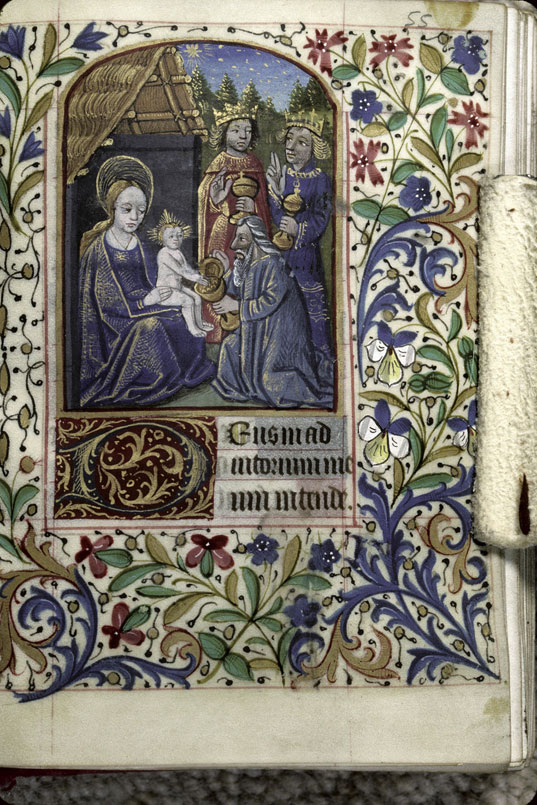 55
Deus in ad
iutorium me
um intende.